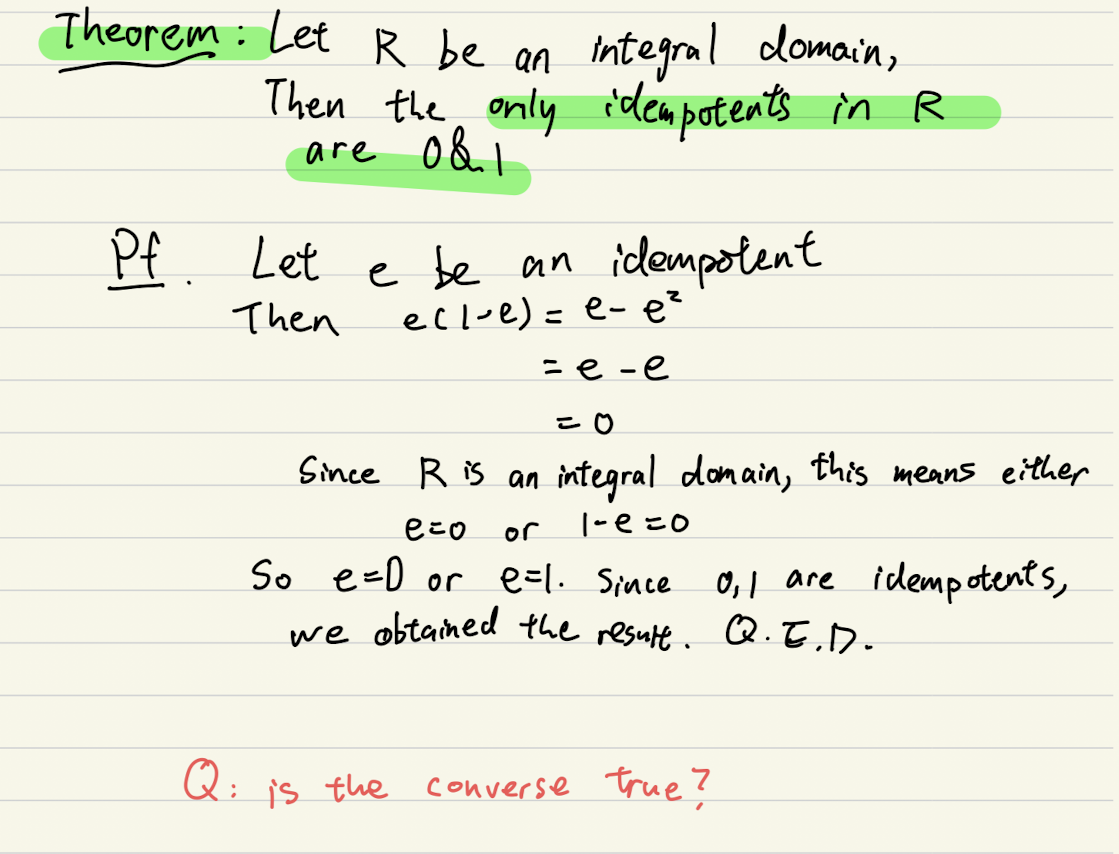 Theorem: Let R be an integral domain,
Then the only idempotents in R
are 0 & 1
Pf. Let e be an idempotent
Then e(1-e) = e - e²
= e - e
= 0
Since R is an integral domain, this means either
e=0 or 1-e=0
So e=0 or e=1. Since 0,1 are idempotents,
we obtained the result. Q.E.D.
Q: is the converse true?